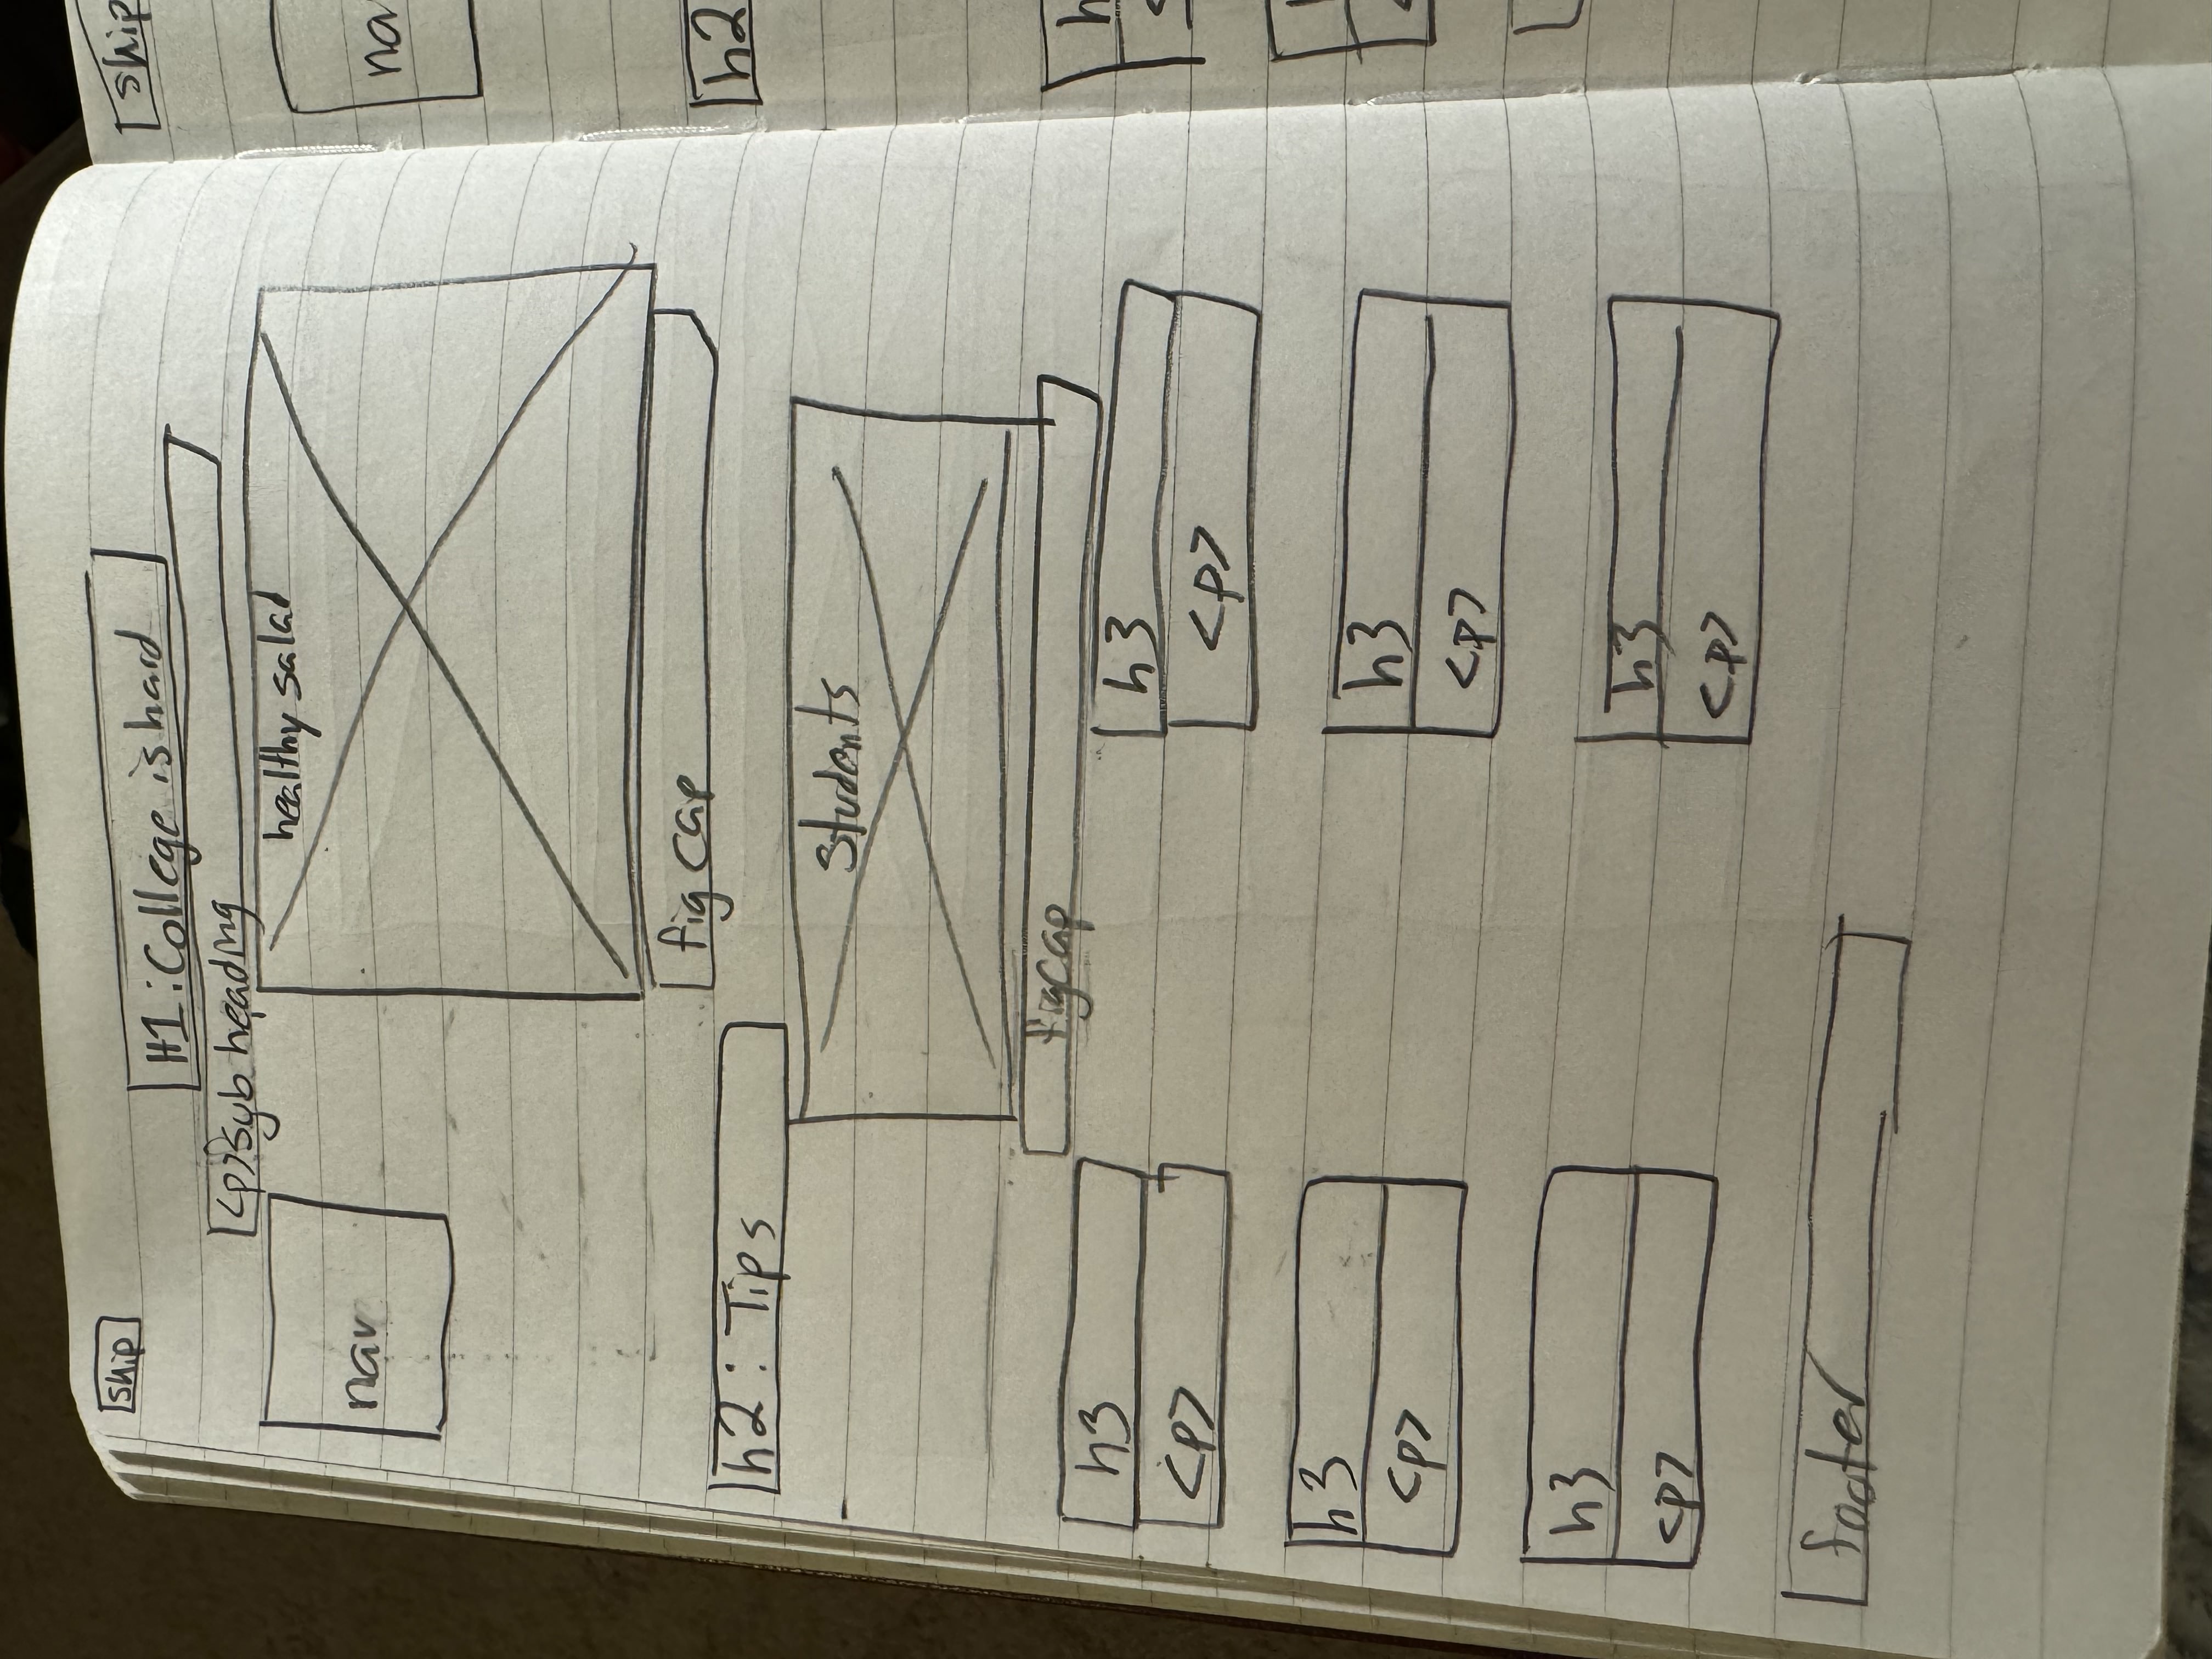 ship
H1:College is hard
<p>Syb heading
nav
healthy salad
fig cap
h2: Tips
Students
figcap
h3
<p>
h3
<p>
h3
<p>
h3
<p>
h3
<p>
h3
<p>
footer
ship
na
h2
h